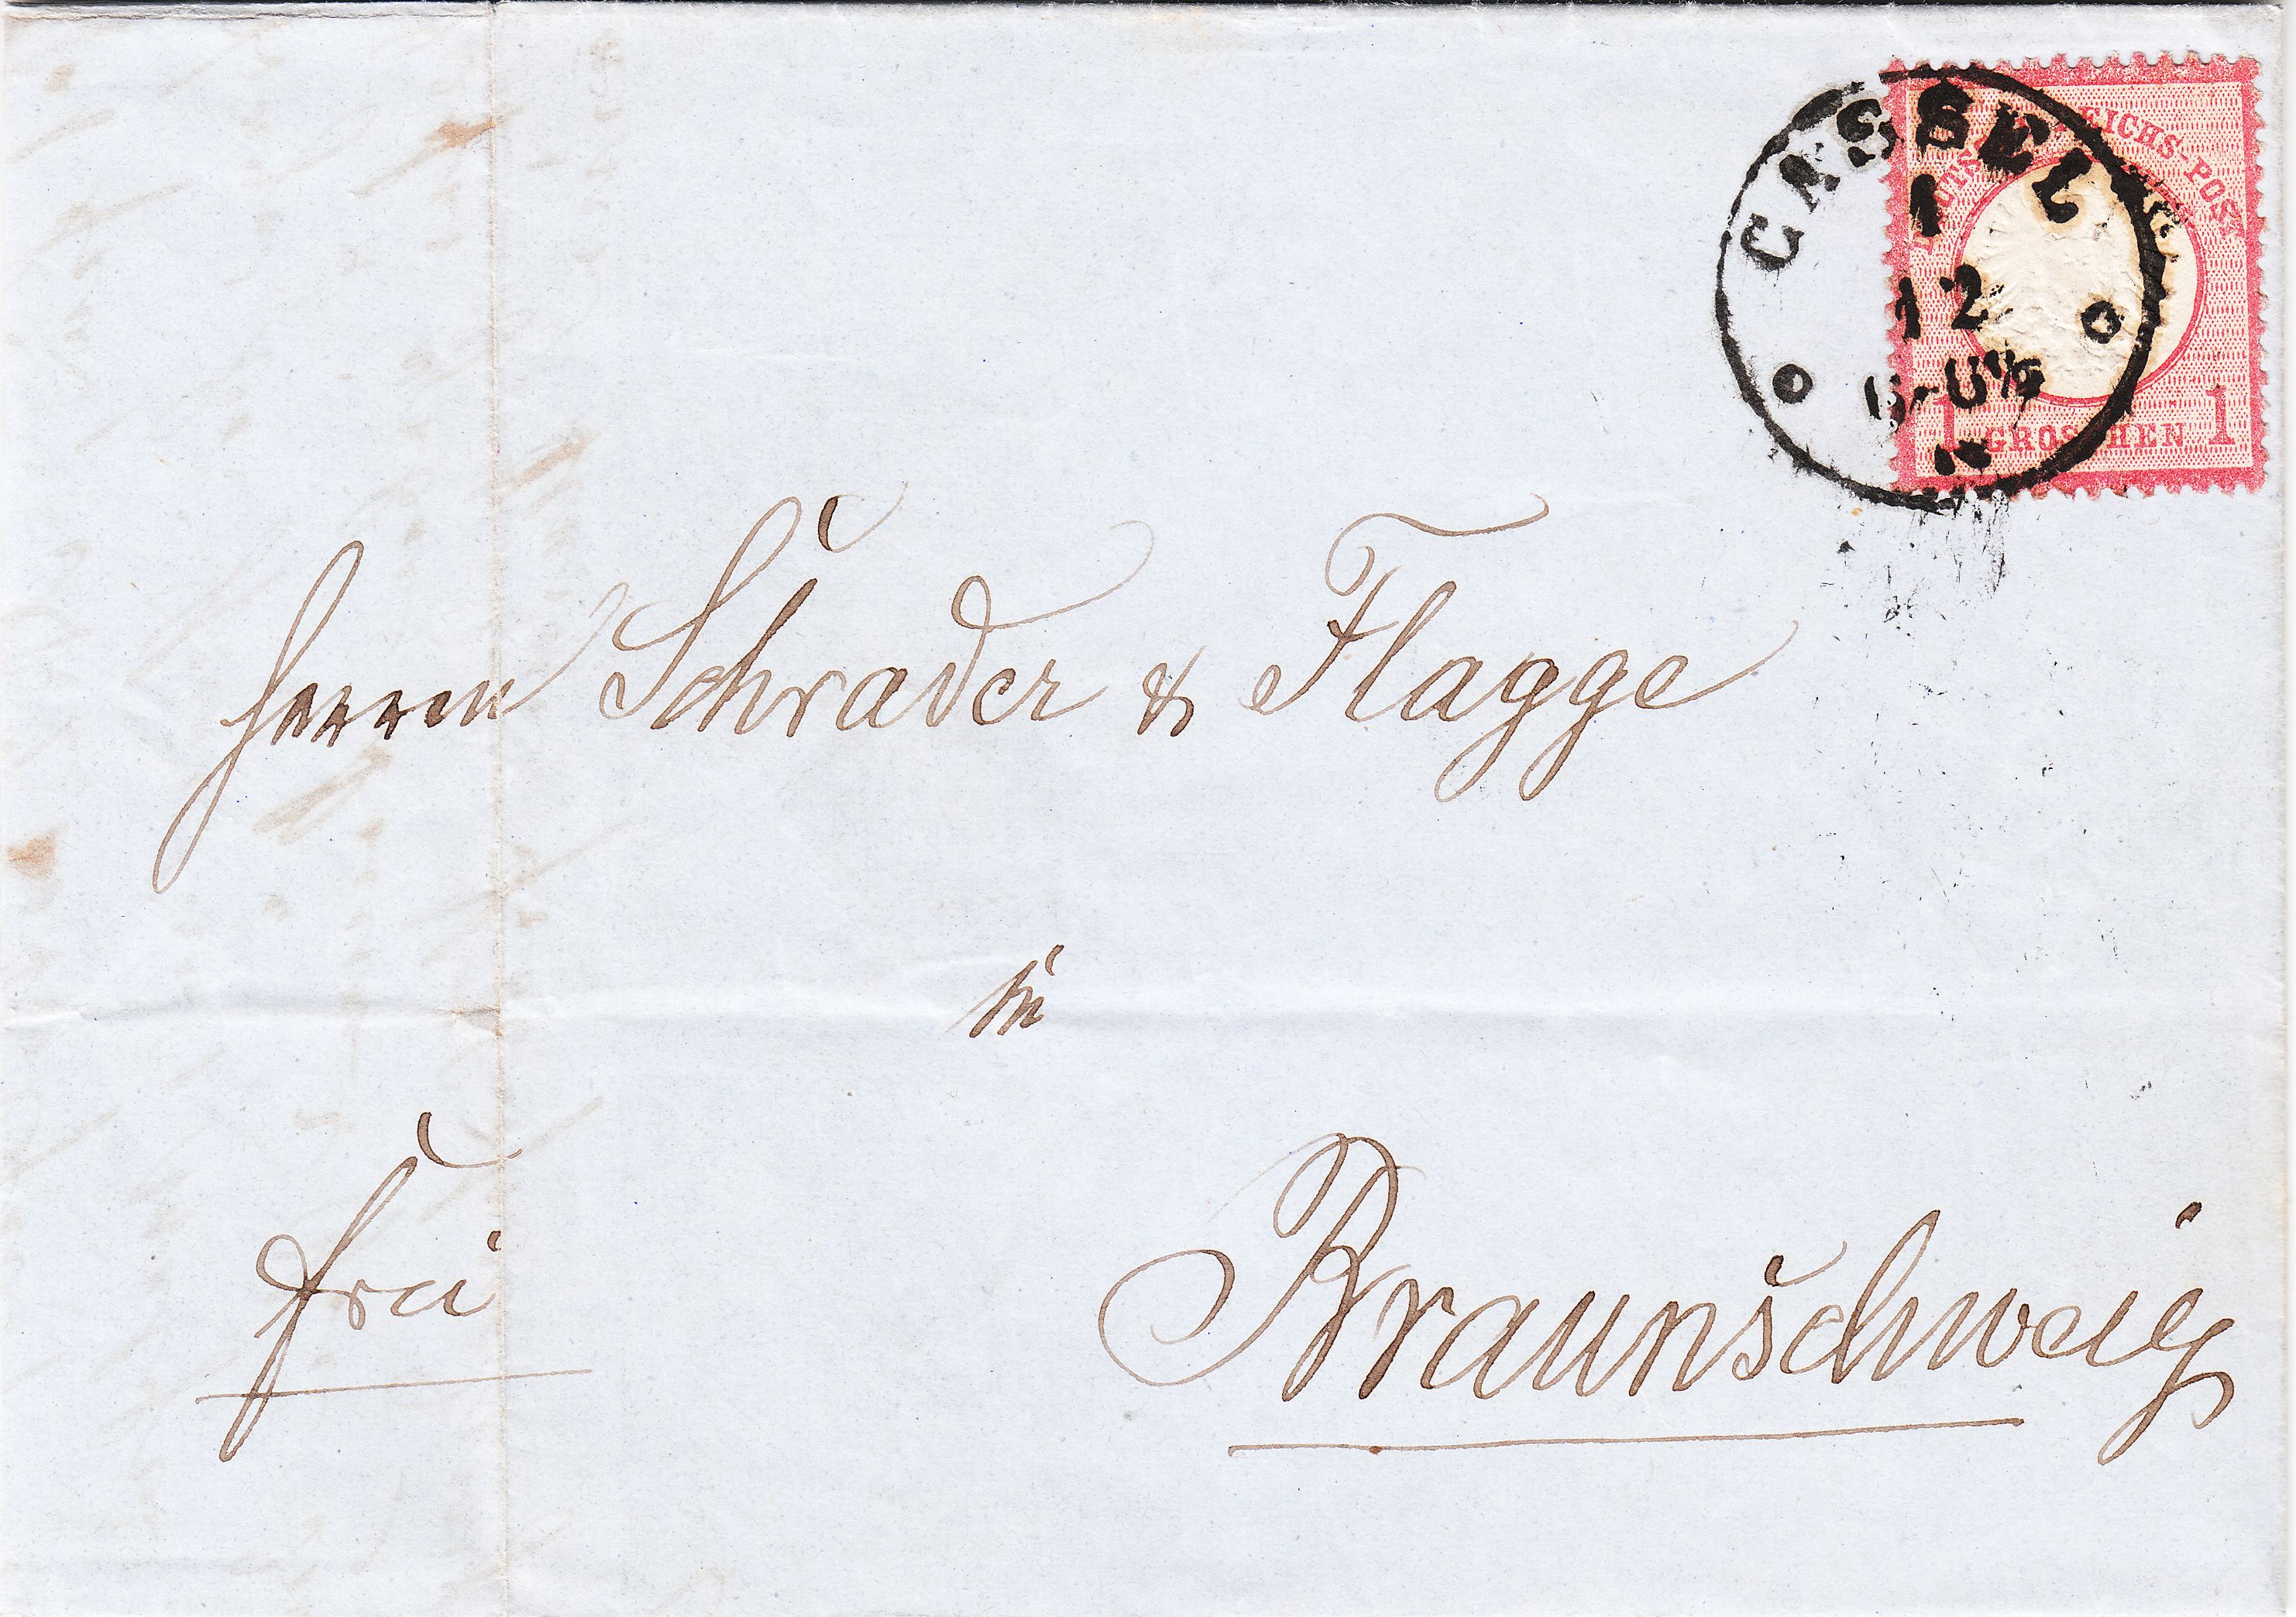 CASSEL
1
12
DEUTSCHE REICHS-POST
1 GROSCHEN 1
Herrn Schrader & Flagge
in
frei
Braunschweig